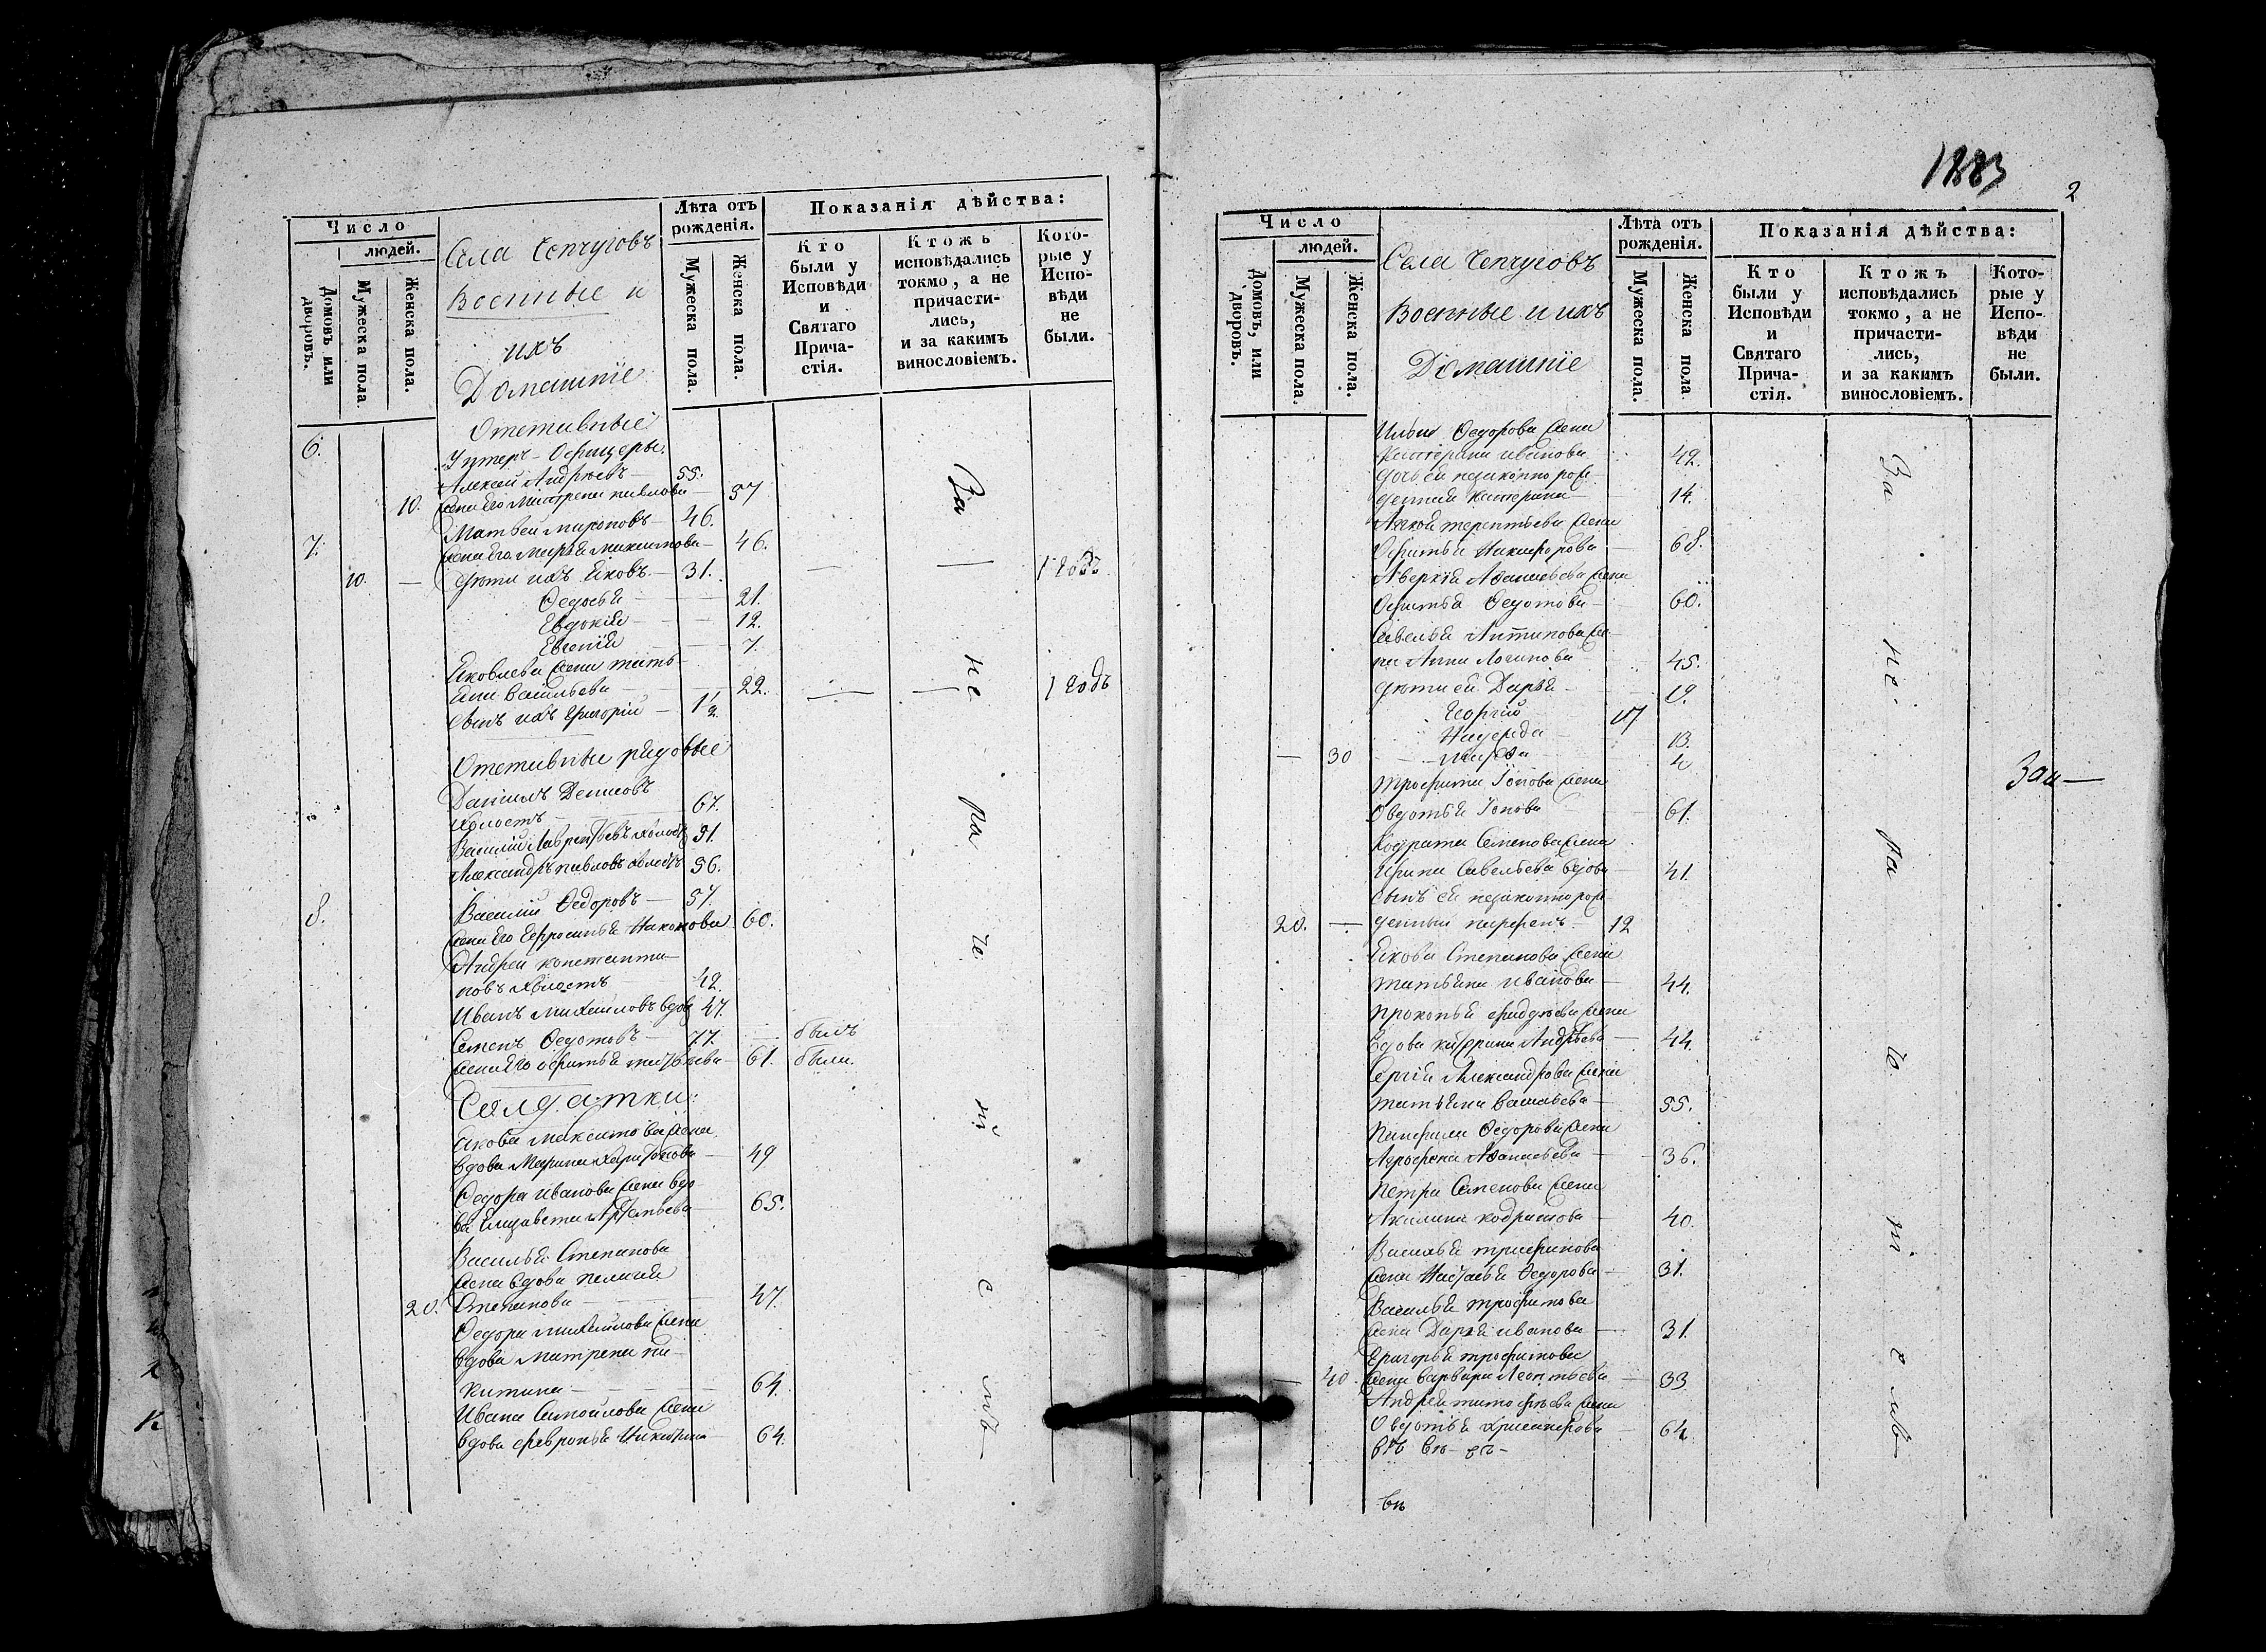 Число
людей.
Домовъ или дворовъ.
Мужеска пола.
Женска пола.
Села Чепчуговъ
Военные и
ихъ
Домашніе
Лѣта отъ рожденія.
Мужеска пола.
Женска пола.
Показанія дѣйства:
Кто были у Исповѣди и Святаго Прича-
стія.
Ктожъ исповѣдались токмо, а не причасти-
лись, и за какимъ винословіемъ.
Кото-
рые у Испо-
вѣди не были.
Отставные
6. Унтеръ-Офицеры.
Алексей Андреевъ — 55.
10. жена его Матрена Павлова — 57
Матвей Мироновъ — 46.
7. жена его Марья Максимова — 46.
10. — дѣти ихъ Яковъ — 31. 1 годъ
Федосья — 21.
Евдокія — 12.
Евгенія — 7.
Яковлева жена Тать-
яна Васильева — 22. 1 годъ
сынъ ихъ Григорій — 1 1/2
Отставные рядовые
Данилъ Денисовъ
холостъ — 67.
Василій Лаврентьевъ холостъ 51.
Александръ Павловъ холостъ 56.
Василій Федоровъ — 57.
8. жена его Ефросинья Никонова 60.
Андрей Константи-
новъ холостъ 42.
Иванъ Михайловъ вдовъ 47.
Семенъ Федотовъ — 77. былъ
жена его Офимья Матвеева — 61. была.
Солдатки:
Якова Максимова жена
вдова Марина Харитонова — 49
Федора Иванова жена вдо-
ва Елизавета Артемьева 65.
Василья Степанова
жена вдова Пелагея
20. Степанова — 47.
Федора Михайлова жена
вдова Матрена Ни-
китина — 64.
Ивана Самойлова жена
вдова Февронья Никитина 64.
За не ра че ні е мъ
1883
2
Число
людей.
Домовъ, или дворовъ.
Мужеска пола.
Женска пола.
Села Чепчуговъ
Военные и ихъ
Домашніе
Лѣта отъ рожденія.
Мужеска пола.
Женска пола
Показанія дѣйства:
Кто были у Исповѣди и Святаго Прича-
стія.
Ктожъ исповѣдались токмо, а не причасти-
лись, и за какимъ винословіемъ.
Кото-
рые у Испо-
вѣди не были.
Ильи Федорова жена
Катерина Иванова 42.
дочь ея незаконно рож-
денная Катерина — 14.
Терентьева жена
Офимья Никифорова — 68.
Аверкія Афанасьева жена
Офимья Федотова — 60.
Савелья Антипова же-
на Анна Логинова — 45.
дѣти ея Дарья — 19.
Георгій 17
Надежда — 13.
— 30 Марфа — 4
Трофима Іонова жена
Овдотья Іонова 61.
Кодрата Семенова жена
Ирина Савельева вдова — 41.
сынъ ея незаконно рож-
20. — денный Парфенъ — 12
Якова Степанова жена
Татьяна Иванова — 44.
Прокопья Фаддѣева жена
вдова Катерина Андреева — 44.
Сергія Александрова жена
Татьяна Васильева — 55.
Панфила Федорова жена
Агрофена Афанасьева — 36.
Петра Семенова жена
Акилина Кодратова — 40.
Василья Трифонова
жена Настасья Федорова — 31.
Василья Трофимова
жена Дарья Иванова — 31.
Григорья Трофимова
— 40. жена Варвара Леонтьева — 33
Андрея Тимофеева жена
Овдотья 64
За не ра че ні е мъ